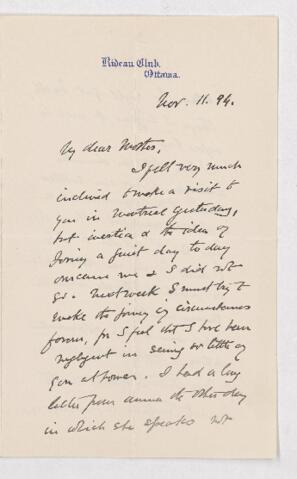 Rideau Club,
Ottawa.
Nov. 11. 94.
My dear Mother,
I felt very much
inclined to make a visit to
you in Montreal yesterday,
but inertia & the idea of
having a quiet day to day
overcame me & I did not
go. Next week I must try to
make the joining of circumstances
for I feel that I have been
negligent in seeing so little of
you at home. I had a long
letter from Anna the other day
in which she speaks